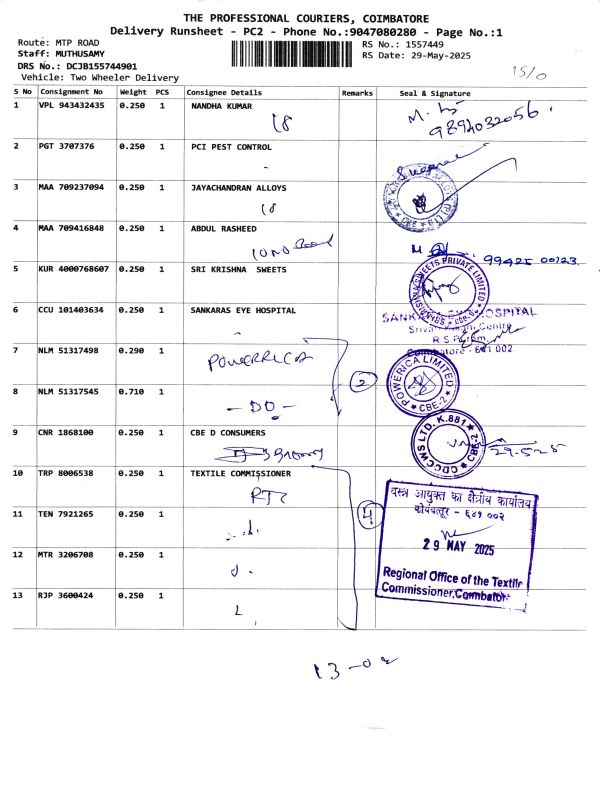 THE PROFESSIONAL COURIERS, COIMBATORE
Delivery Runsheet - PC2 - Phone No.:9047080280 - Page No.:1
Route: MTP ROAD
Staff: MUTHUSAMY
DRS No.: DCJB155744901
Vehicle: Two Wheeler Delivery
RS No.: 1557449
RS Date: 29-May-2025
15/0
S No Consignment No Weight PCS Consignee Details Remarks Seal & Signature
1 VPL 943432435 0.250 1 NANDHA KUMAR
18
9894032056
2 PGT 3707376 0.250 1 PCI PEST CONTROL
3 MAA 709237094 0.250 1 JAYACHANDRAN ALLOYS
18
4 MAA 709416848 0.250 1 ABDUL RASHEED
99425 00123
5 KUR 4000768607 0.250 1 SRI KRISHNA SWEETS
6 CCU 101403634 0.250 1 SANKARAS EYE HOSPITAL
HOSPITAL
Coimbatore - 641 002.
7 NLM 51317498 0.290 1
POWERICA
2
POWERICA LIMITED
CBE-2
8 NLM 51317545 0.710 1
- DO -
9 CNR 1868100 0.250 1 CBE D CONSUMERS
CDCCWS LTD. K.881
CBE-2
29.5.25
10 TRP 8006538 0.250 1 TEXTILE COMMISSIONER
4
वस्त्र आयुक्त का क्षेत्रीय कार्यालय
कोयंबत्तूर - ६४१ ००२
29 MAY 2025
Regional Office of the Textile
Commissioner, Coimbatore
11 TEN 7921265 0.250 1
12 MTR 3206708 0.250 1
13 RJP 3600424 0.250 1